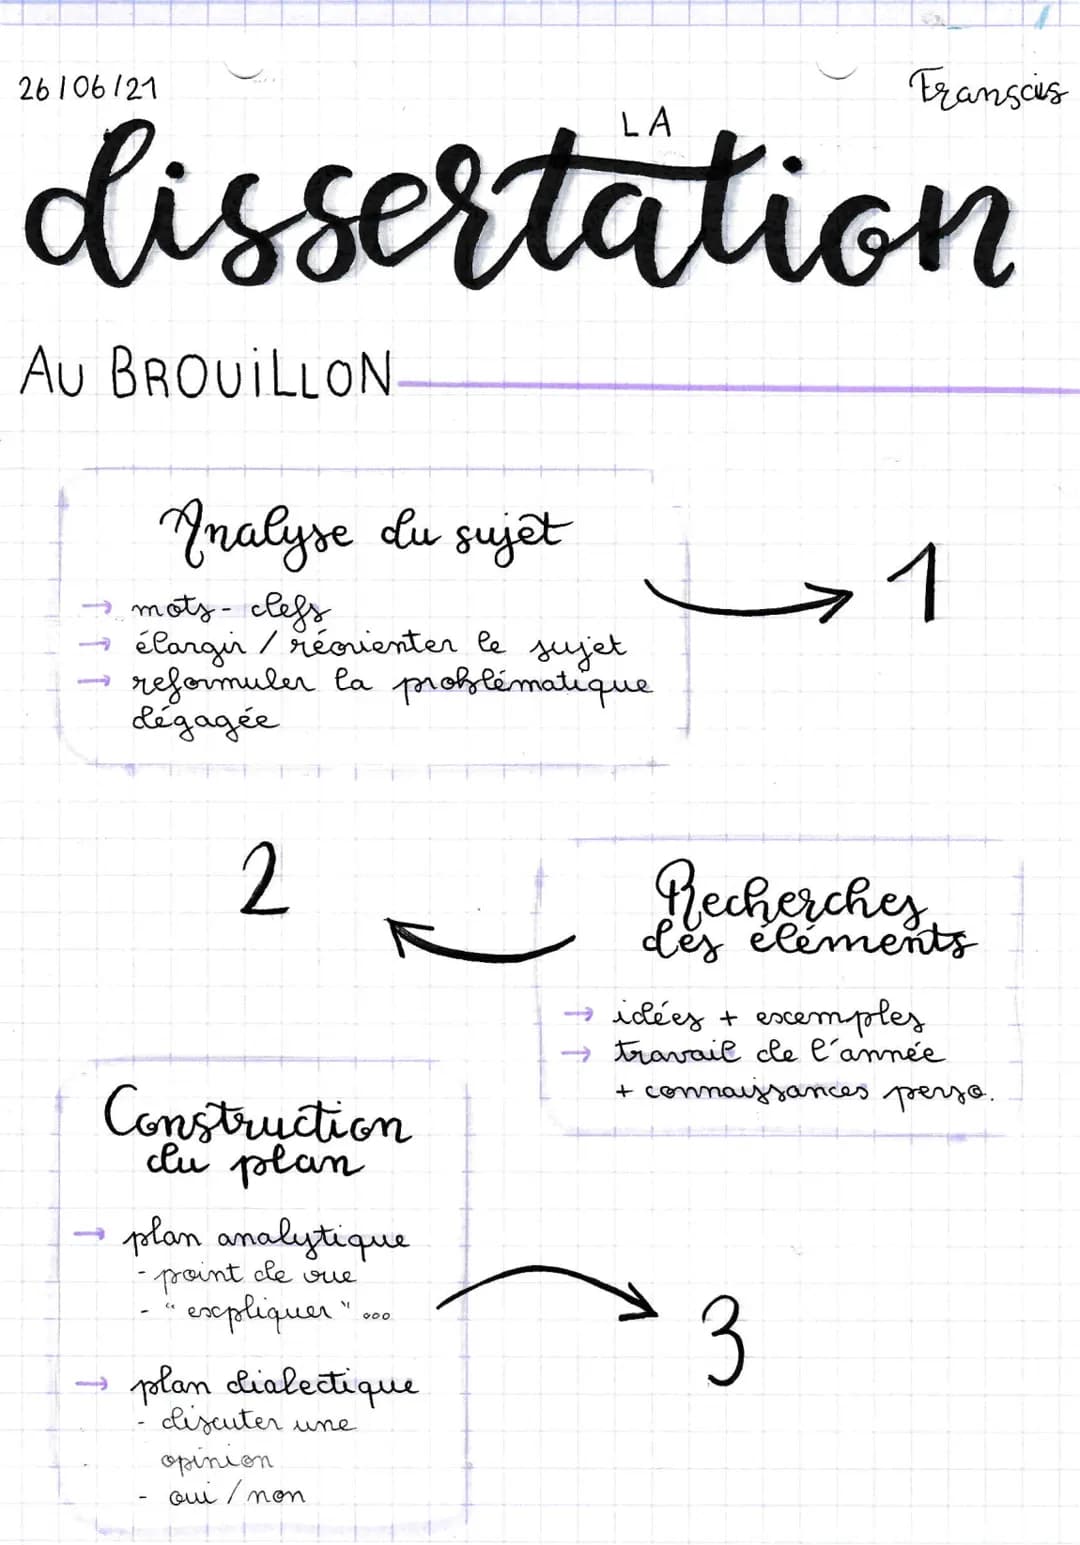 26/06/21
Français
LA
dissertation
AU BROUILLON
Analyse du sujet
→ mots-clefs
→ élargir / réorienter le sujet
→ reformuler la problématique
dégagée
1
2
Recherches
des éléments
→ idées + exemples
→ travail de l'année
+ connaissances perso.
Construction
du plan
→ plan analytique
- point de vue
- "expliquer" ...
→ plan dialectique
- discuter une
opinion
- oui / non
3